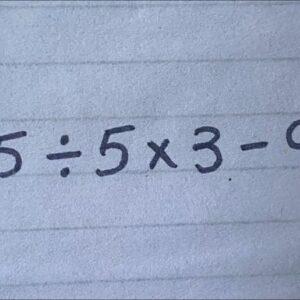 5÷5×3-